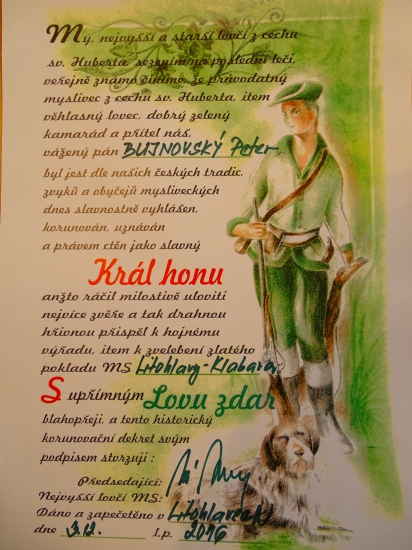 My, nejvyšší a starší lovčí z cechu
sv. Huberta, sezváním na poslední leči,
veřejně známo činíme, že pravodatný
myslivec z cechu sv. Huberta, item
věhlasný lovec, dobrý zelený
kamarád a přítel náš,
vážený pán BUJNOVSKÝ Peter
byl jest dle našich českých tradic,
zvyků a obyčejů mysliveckých
dnes slavnostně vyhlášen,
korunován, uznáván
a právem ctěn jako slavný
Král honu
anžto ráčil milostivě uloviti
nejvíce zvěře a tak drahnou
hřivnou přispěl k hojnému
výřadu, item k zvelebení zlatého
pokladu MS Litohlavy-Klabava
S upřímným Lovu zdar
blahopřeji, a tento historický
korunovační dekret svým
podpisem stvrzuji :
Předsedající:
Nejvyšší lovčí MS:
Dáno a zapečetěno v Litohlavech
dne 3.12. l.p. 2016